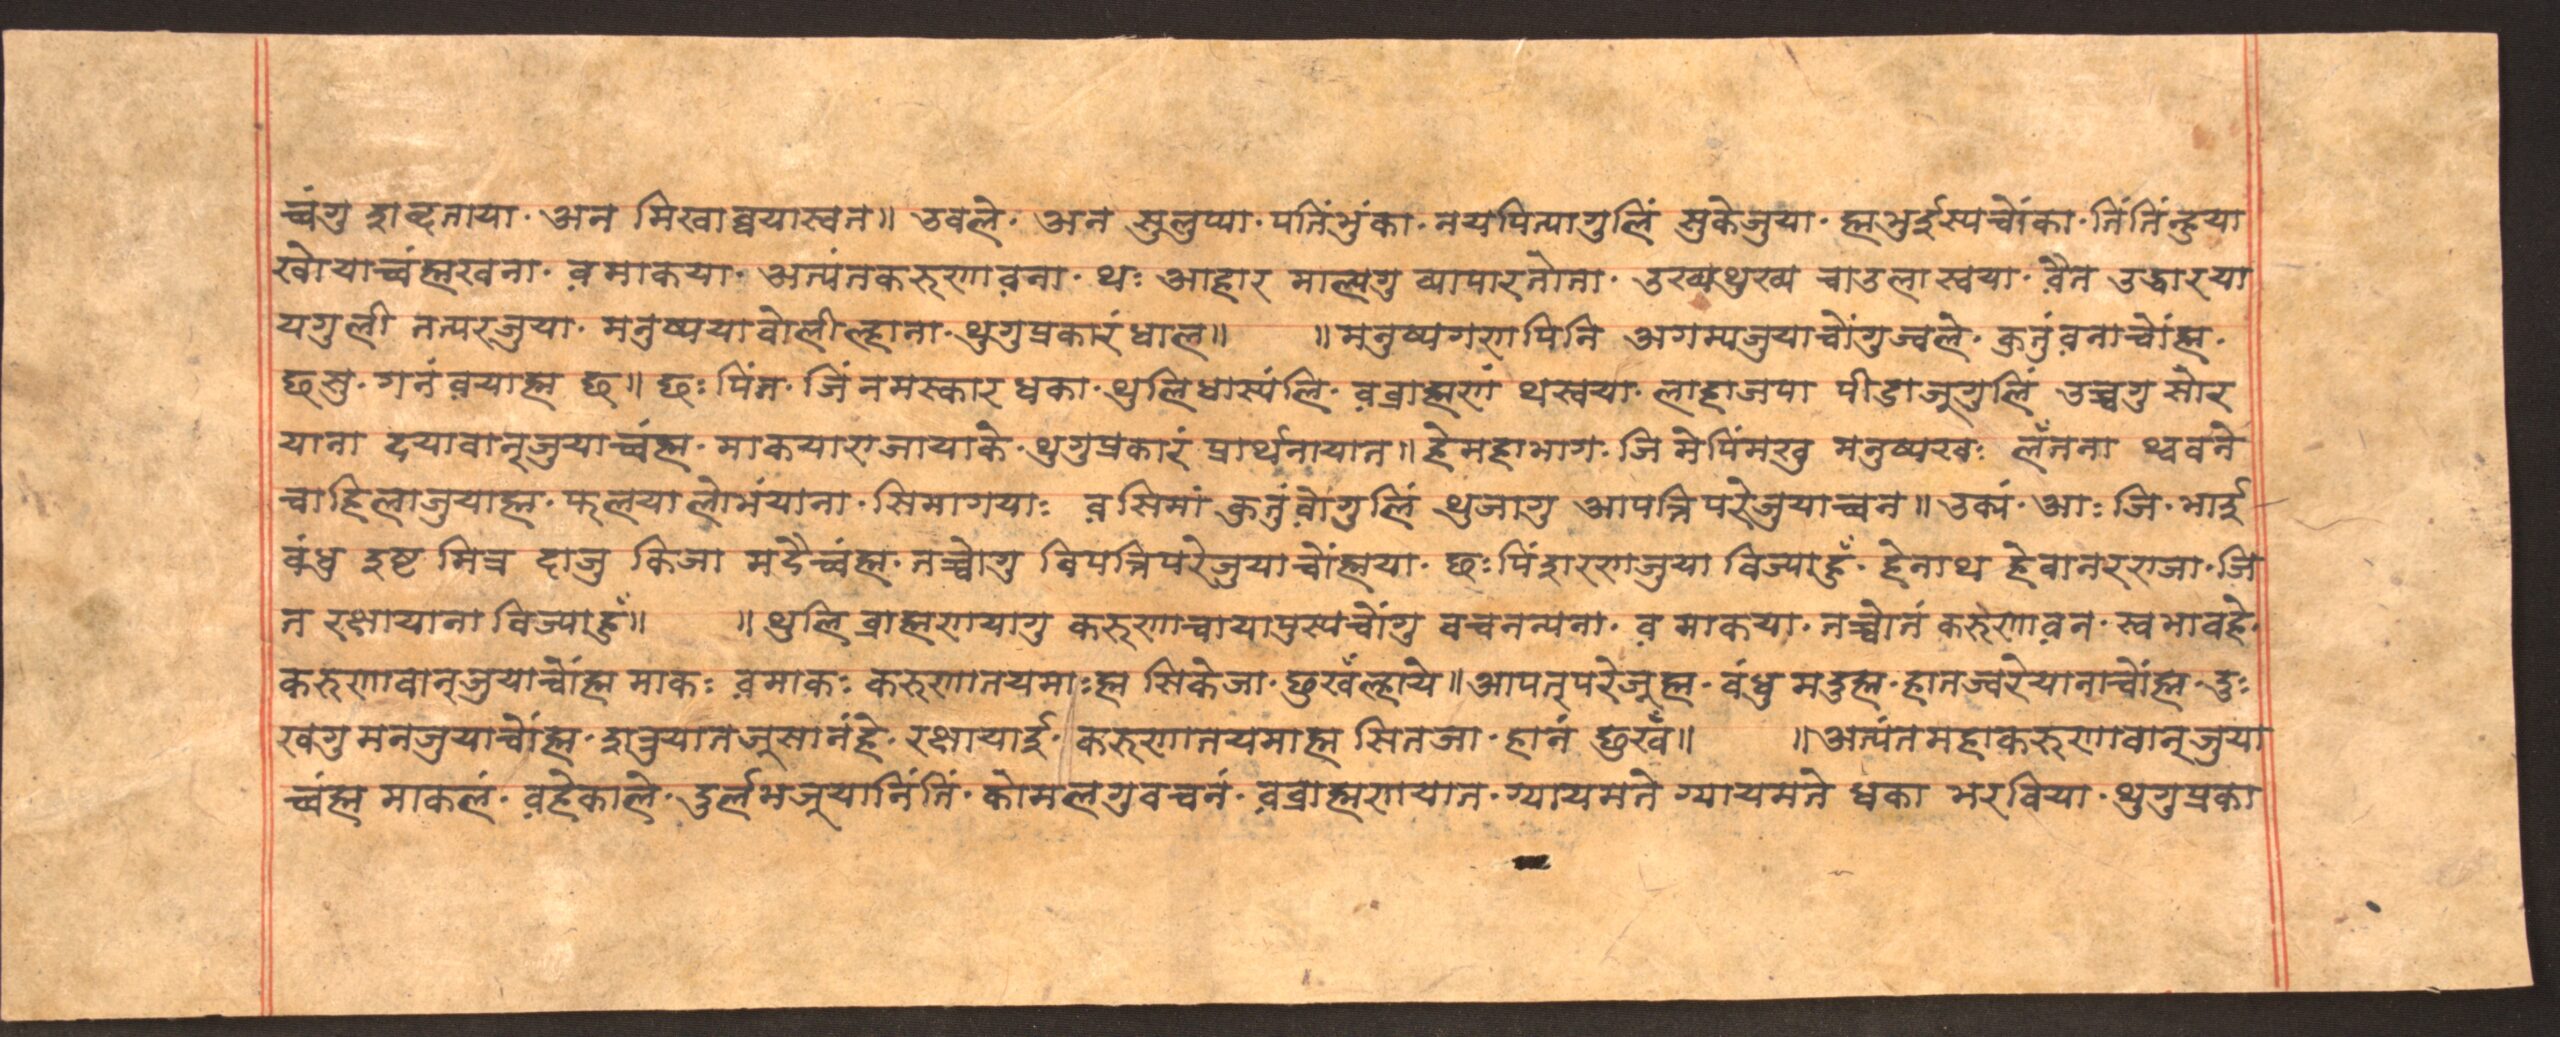 च्वंगु शब्दताया· अन मिखाब्वयास्वत॥ उवले· अन सुलुप्या· पतिंभुंका· नयपित्यागुलिं सुकेजुया· ह्मभुईस्यचोंका· तिंतिंन्हुया
खोयाच्वंह्मखना· व़माकया· अत्यंतकरुणाव़ना· थः आहार माल्यगु व्यापारतोता· उख्यथुख्य चाउलास्वया· वै़त उद्धारया
यगुली तत्परजुया· मनुष्ययावोलील्हाना· थुगुप्रकारंधाल॥ ॥मनुष्यगणपिनि अगम्यजुयाचोंगुज्वले· कुतुंव़नाचोंह्म·
छसु· गनंव़याह्म छ॥ छः पिंत· जिंनमस्कार धका· थुलिधास्यंलि· व़ब्राह्मणं थस्वया· लाहाजपा पीडाजूगुलिं उच्चगु सोर
याना दयावान्जुयाच्वंह्म· माकयाराजायाके· थुगुप्रकारं प्रार्थनायात॥ हेमहाभाग· जि मेपिंमखु मनुष्यखः लँतना थ्ववने
चाहिलाजुयाह्म· फलयालोभंयाना· सिमागयाः व़सिमां कुतुंवो़गुलिं थुजागु आपत्तिपरेजुयाच्वन॥ उक्यं· आः जि· भाई
बंधु इष्ट मित्र दाजु किजा मदैच्वंह्म· तच्चोगु विपत्तिपरेजुयाचोंह्मया· छःपिंशरणजुया विज्याहुँ· हेनाथ हेवानरराजा· जि
त रक्षायाना विज्याहुँ॥ ॥थुलि ब्राह्मणयागु करुणाचायापुस्यचोंगु वचनन्यना· व़ माकया· तच्चोतं करुणाव़न· स्वभावहे·
करुणावान्जुयाचोंह्म माकः व़माकः करुणातयमाःह्म सिकेजा· छुखँल्हाये॥ आपत्परेजूह्म· बंधु मदुह्म· हातज्वरेयानाचोंह्म· दुः
खगु मनजुयाचोंह्म· शत्रुयातजूसानंहे· रक्षायाई· करुणातयमाह्म सितजा· हानं छुखँ॥ ॥अत्यंतमहाकरुणावान्जुया
च्वंह्म माकलं· व़हेकाले· दुर्लभजूयानिंतिं· कोमलगुवचनं· व़ब्राह्मणयात· ग्यायमते ग्यायमते धका भरविया· थुगुप्रका